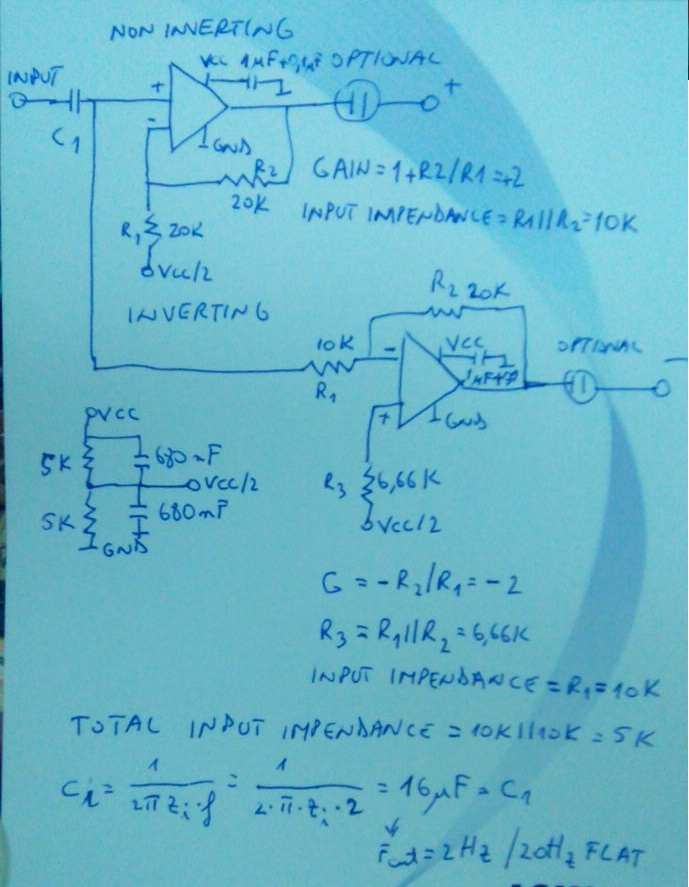 NON INVERTING
VCC 1µF+0,1µF OPTIONAL
INPUT
+
+
-
C1
GND
R2
20K
GAIN = 1+R2/R1 = +2
INPUT IMPENDANCE = R1//R2 = 10K
R1 20K
VCC/2
INVERTING
R2 20K
10K
VCC
OPTIONAL
-
-
R1
1µF+
+
GND
VCC
5K
680nF
VCC/2
5K
680nF
GND
R3 6,66K
VCC/2
G = -R2/R1 = -2
R3 = R1//R2 = 6,66K
INPUT IMPENDANCE = R1 = 10K
TOTAL INPUT IMPENDANCE = 10K//10K = 5K
Ci = 1/2π Zi·f = 1/2·π·Zi·2 = 16µF = C1
Fcut = 2Hz / 20Hz FLAT